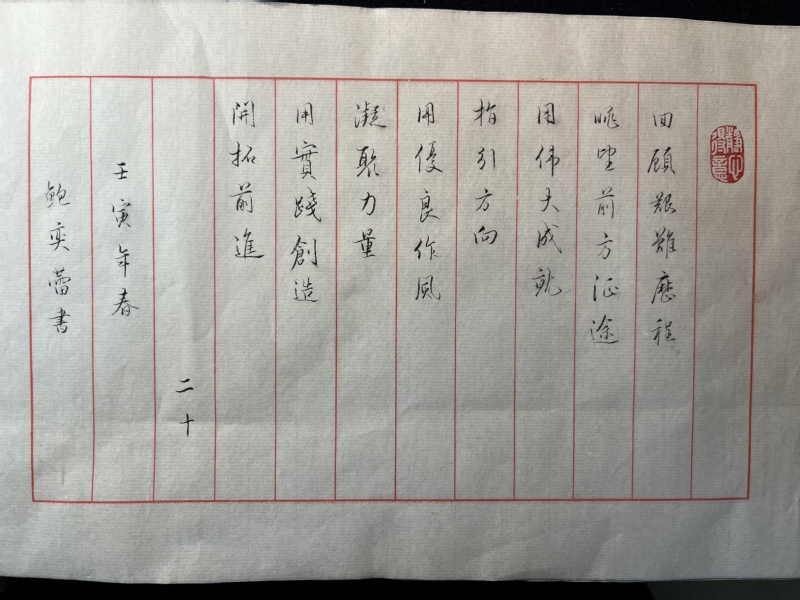 回顾艰難歷程
眺望前方征途
用伟大成就
指引方向
用優良作風
凝聚力量
用實踐創造
開拓前進
二十
壬寅年春
鲍奕蕾書